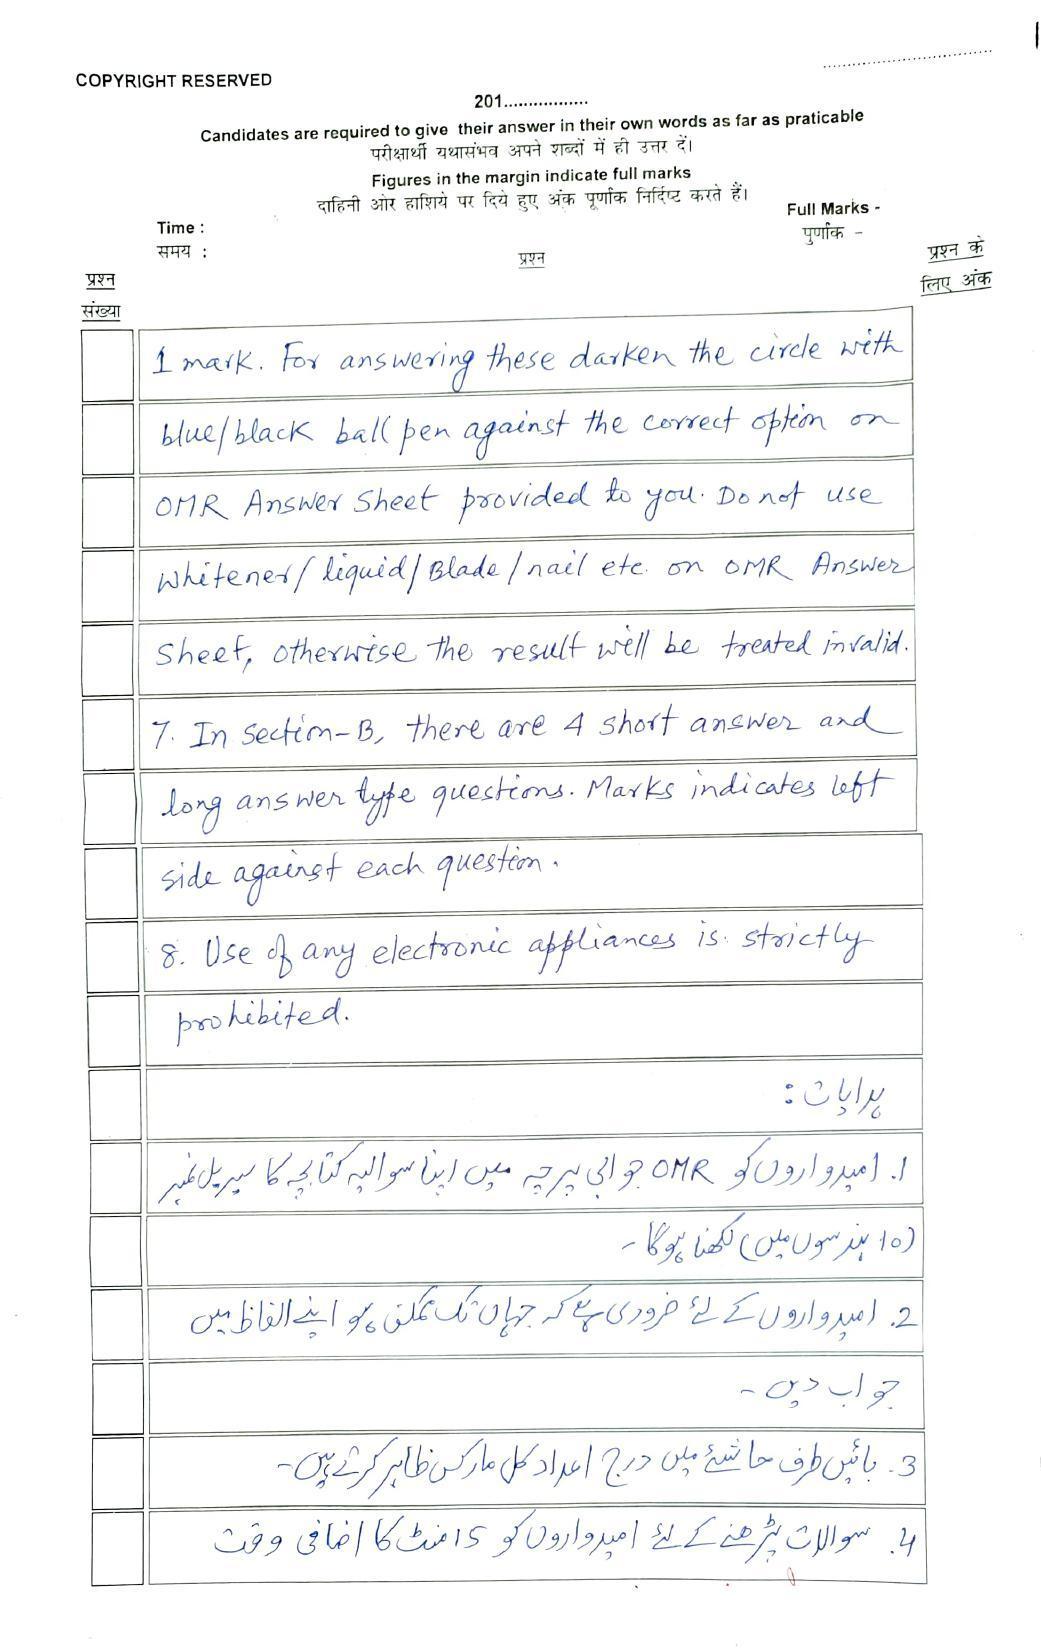 COPYRIGHT RESERVED
201.................
Candidates are required to give their answer in their own words as far as praticable
परीक्षार्थी यथासंभव अपने शब्दों में ही उत्तर दें।
Figures in the margin indicate full marks
दाहिनी ओर हाशिये पर दिये हुए अंक पूर्णांक निर्दिष्ट करते हैं।
Time :
Full Marks -
समय :
पुर्णांक -
प्रश्न
प्रश्न के
लिए अंक
प्रश्न
संख्या
1 mark. For answering these darken the circle with
blue/black ball pen against the correct option on
OMR Answer Sheet provided to you. Do not use
Whitener/liquid/Blade/nail etc. on OMR Answer
Sheet, otherwise the result will be treated invalid.
7. In Section-B, there are 4 short answer and
long answer type questions. Marks indicates left
side against each question.
8. Use of any electronic appliances is strictly
prohibited.
ہدایات :
1. امیدواروں کو OMR جوابی پرچہ میں اپنا سوالیہ کتابچہ کا سیریل نمبر
(10 ہندسوں میں) لکھنا ہوگا۔
2. امیدواروں کے لئے ضروری ہے کہ جہاں تک ممکن ہو اپنے الفاظ میں
جواب دیں۔
3. بائیں طرف حاشئے میں درج اعداد کل مارکس ظاہر کرتے ہیں۔
4. سوالات پڑھنے کے لئے امیدواروں کو 15 منٹ کا اضافی وقت